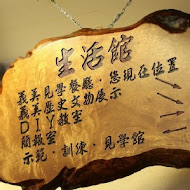 生活館
義美見學餐廳．您現在位置
義美歷史文物展示
DIY教室
簡報室
示範．訓練．見學館